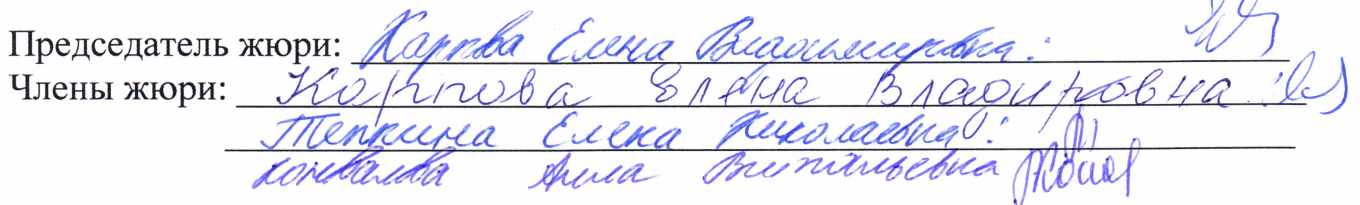 Председатель жюри: Карпова Елена Владимировна:
Члены жюри: Карпова Елена Владировна:
Тепкина Елена Николаевна:
Коновалова Анна Витальевна